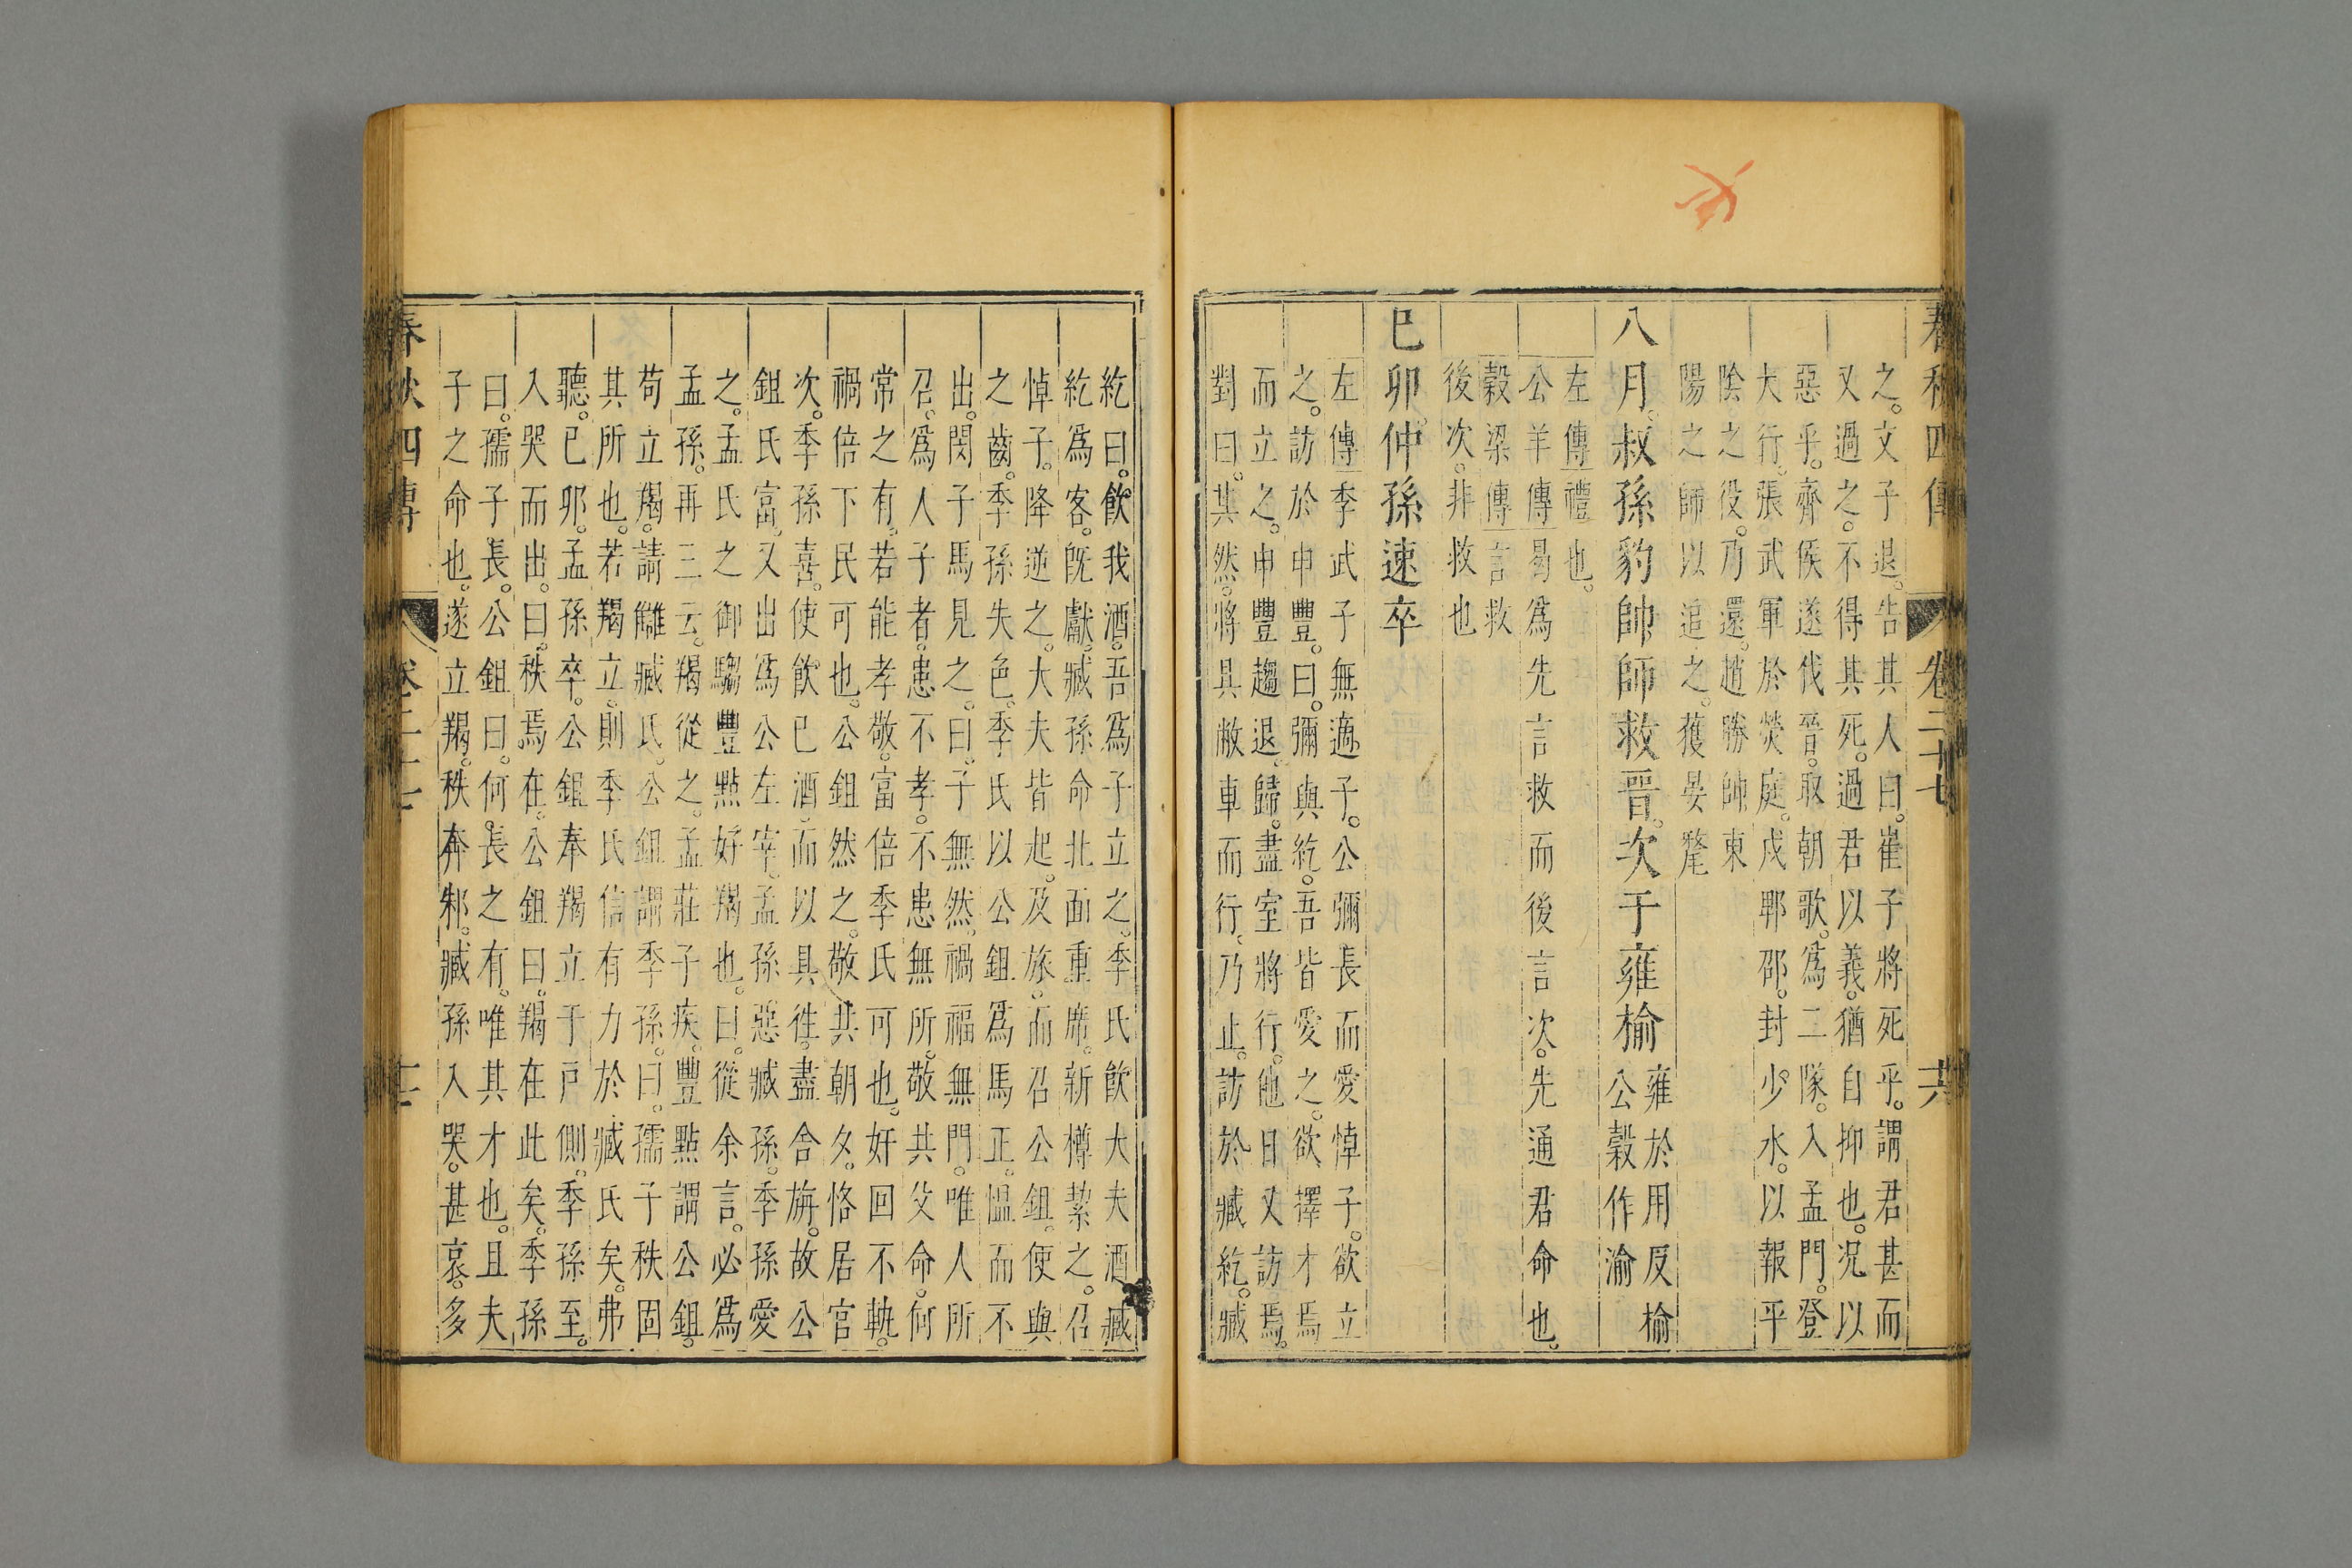 春秋四傳 卷二十七 十六
之。文子退。告其人曰。崔子將死乎。謂君甚而
又過之。不得其死。過君以義。猶自抑也。况以
惡乎。齊侯遂伐晉。取朝歌。爲二隊。入孟門。登
大行。張武軍於熒庭。戍郫邵。封少水。以報平
陰之役。乃還。趙勝帥東
陽之師以追之。獲晏氂
八月。叔孫豹帥師救晉。次于雍榆
雍於用反榆
公穀作渝
左傳禮也。
公羊傳曷爲先言救而後言次。先通君命也。
穀梁傳言救
後次。非救也
已卯。仲孫速卒
左傳季武子無適子。公彌長而愛悼子。欲立
之。訪於申豐。曰。彌與紇。吾皆愛之。欲擇才焉
而立之。申豐趨退。歸。盡室將行。他日又訪焉。
對曰。其然。將具敝車而行。乃止。訪於臧紇。臧
紇曰。飲我酒。吾爲子立之。季氏飲大夫酒。臧
紇爲客。旣獻。臧孫命北面重席。新樽絜之。召
悼子。降逆之。大夫皆起。及旅。而召公鉏。使與
之齒。季孫失色。季氏以公鉏爲馬正。慍而不
出。閔子馬見之。曰。子無然。禍福無門。唯人所
召。爲人子者。患不孝。不患無所。敬共父命。何
常之有。若能孝敬。富倍季氏可也。奸回不軌。
禍倍下民可也。公鉏然之。敬共朝夕。恪居官
次。季孫喜。使飲已酒。而以具往。盡舍旃。故公
鉏氏富。又出爲公左宰。孟孫惡臧孫。季孫愛
之。孟氏之御騶豐點好羯也。曰。從余言。必爲
孟孫。再三云。羯從之。孟莊子疾。豐點謂公鉏。
苟立羯。請讎臧氏。公鉏謂季孫。曰。孺子秩固
其所也。若羯立。則季氏信有力於臧氏矣。弗
聽。已卯。孟孫卒。公鉏奉羯立于戶側。季孫至。
入哭而出。曰。秩焉在。公鉏曰。羯在此矣。季孫
曰。孺子長。公鉏曰。何長之有。唯其才也。且夫
子之命也。遂立羯。秩奔邾。臧孫入哭。甚哀。多
春秋四傳 卷二十七